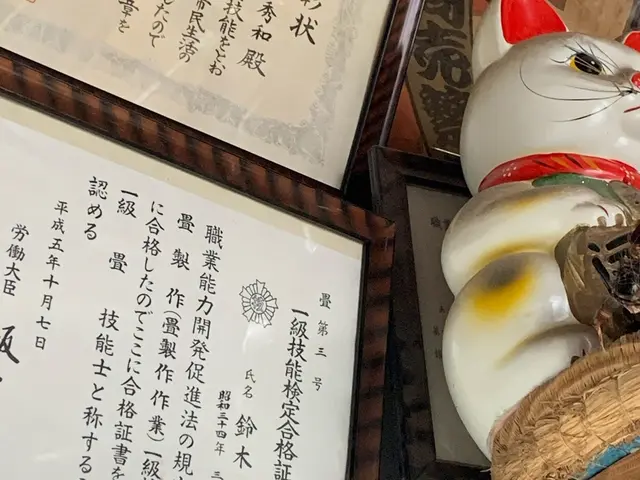 状
秀和 殿
技能をとお
市民生活の
したので
章を
畳 第三号
一級技能検定合格証
氏名 鈴木
昭和三十四年 三
職業能力開発促進法の規
畳製作(畳製作作業)一級
に合格したのでここに合格証書を
一級 畳 技能士と称する
認める
平成五年十月七日
労働大臣